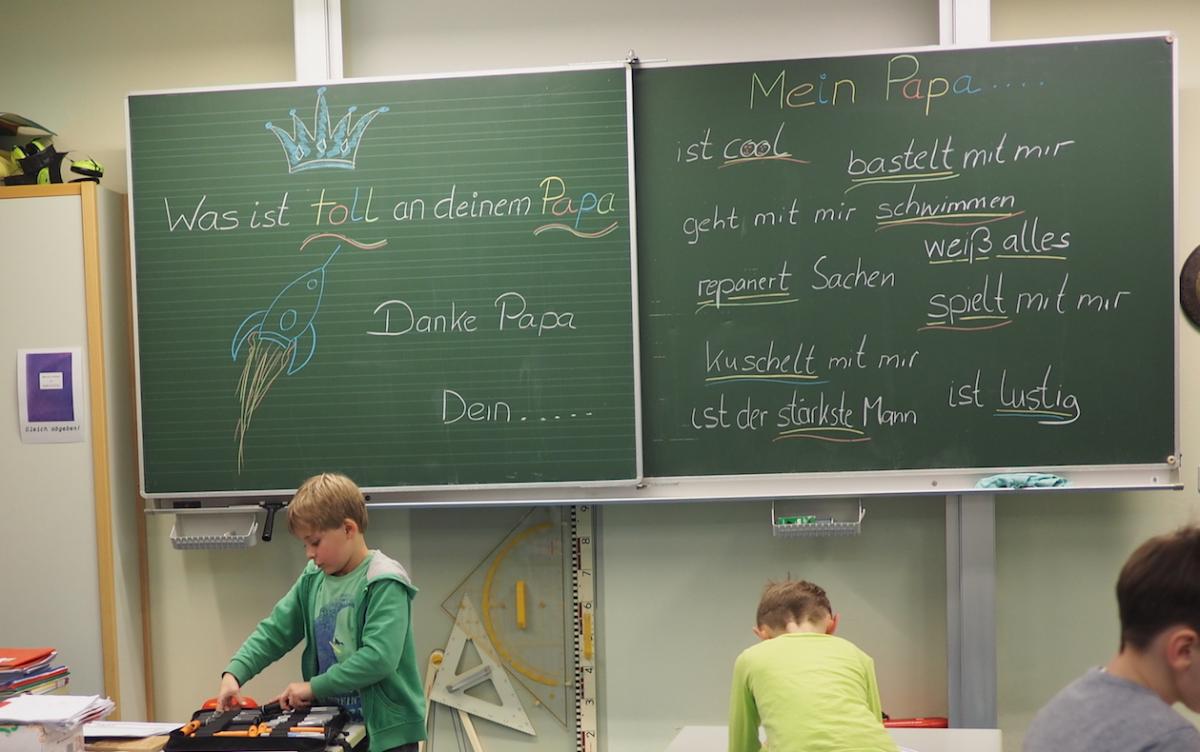 Was ist toll an deinem Papa
Danke Papa
Dein.....
Mein Papa....
ist cool
bastelt mit mir
geht mit mir schwimmen
weiß alles
repariert Sachen
spielt mit mir
kuschelt mit mir
ist der stärkste Mann
ist lustig
Gleich abgeben!